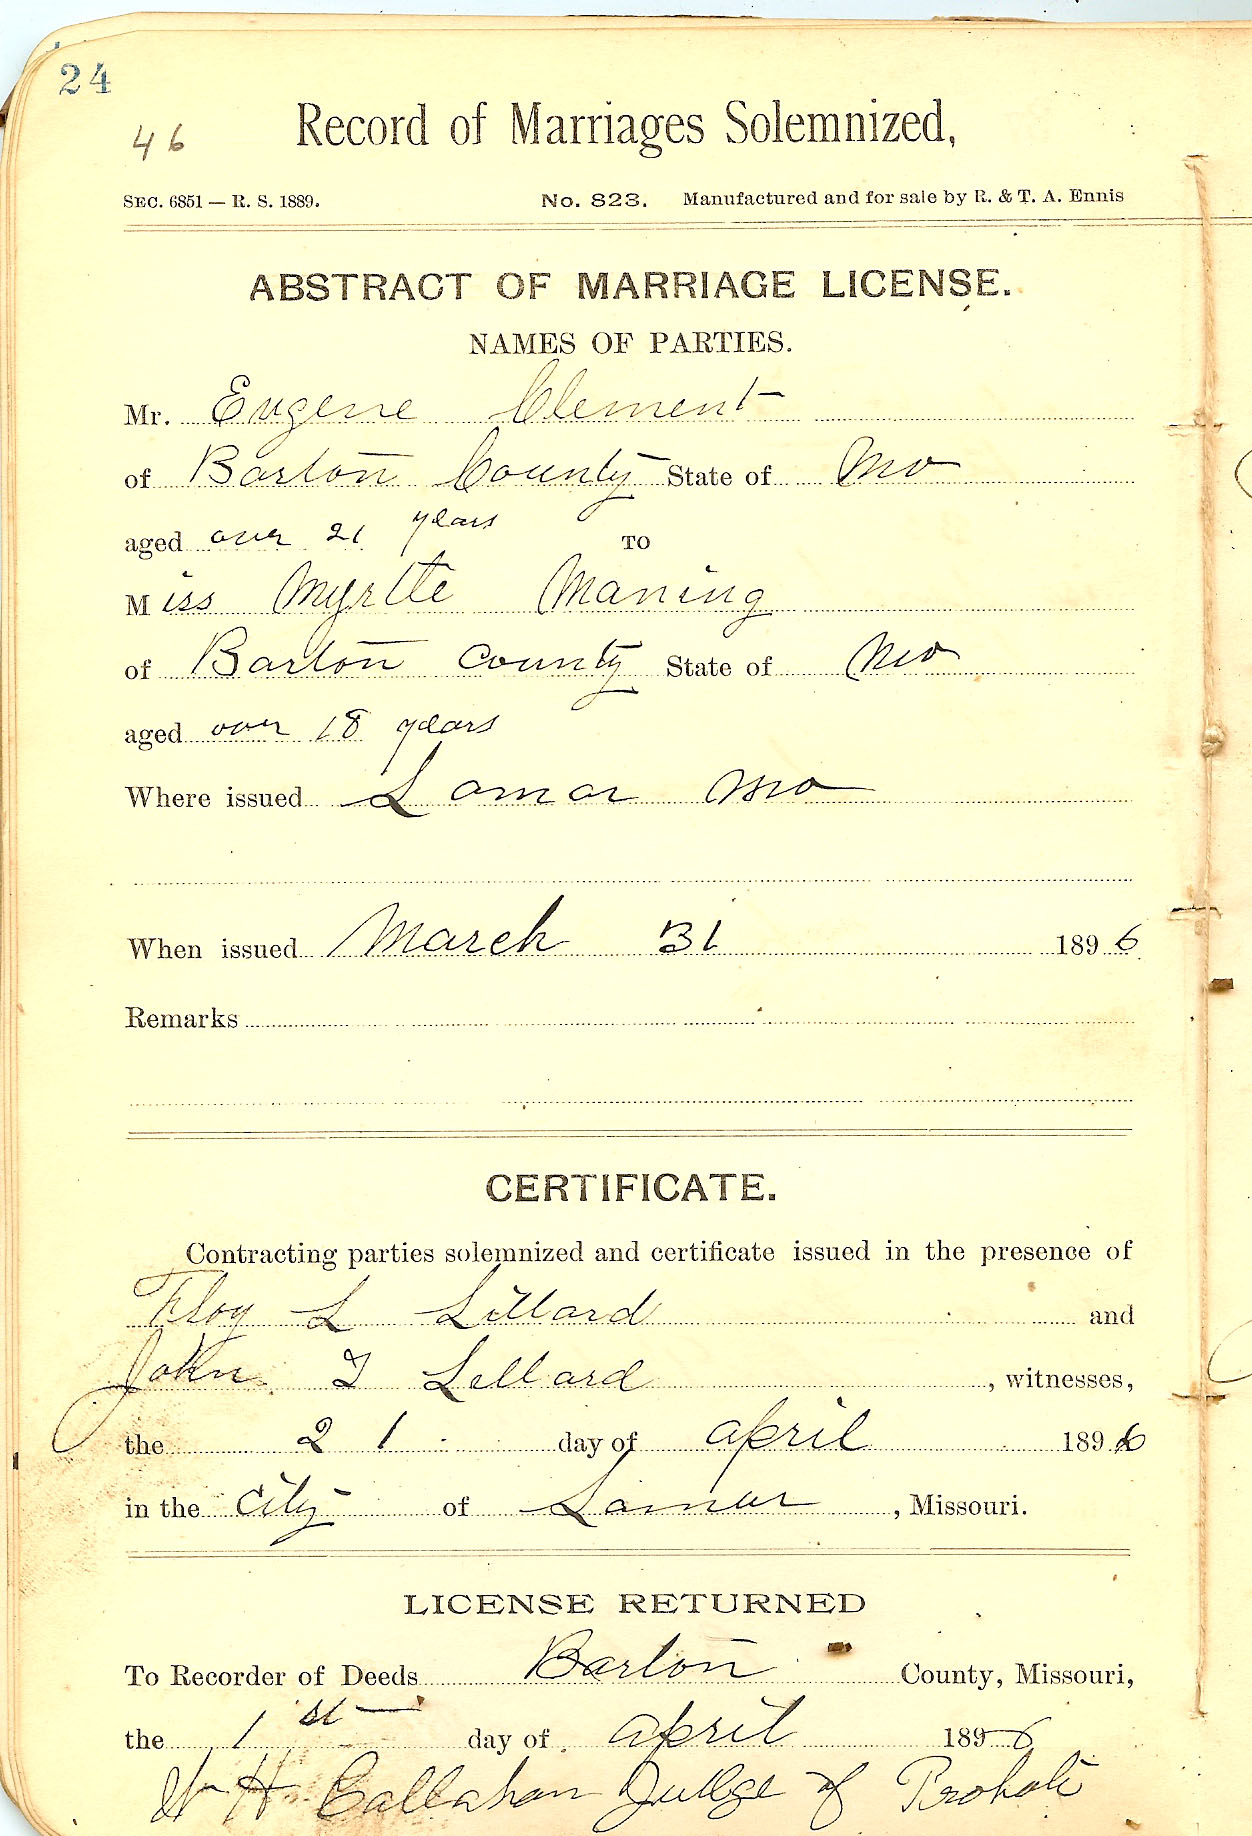 24
46
Record of Marriages Solemnized,
SEC. 6851 — R. S. 1889. No. 823. Manufactured and for sale by R. & T. A. Ennis
ABSTRACT OF MARRIAGE LICENSE.
NAMES OF PARTIES.
Mr. Eugene Clement
of Barton County State of Mo
aged over 21 years TO
Miss Myrtle Maning
of Barton County State of Mo
aged over 18 years
Where issued Lamar Mo
When issued March 31 1896
Remarks
CERTIFICATE.
Contracting parties solemnized and certificate issued in the presence of
Floy L Lillard and
John T Lillard, witnesses,
the 21 day of april 1896
in the City of Lamar, Missouri.
LICENSE RETURNED
To Recorder of Deeds Barton County, Missouri,
the 1st day of april 1896
W H Callahan Judge of Probate